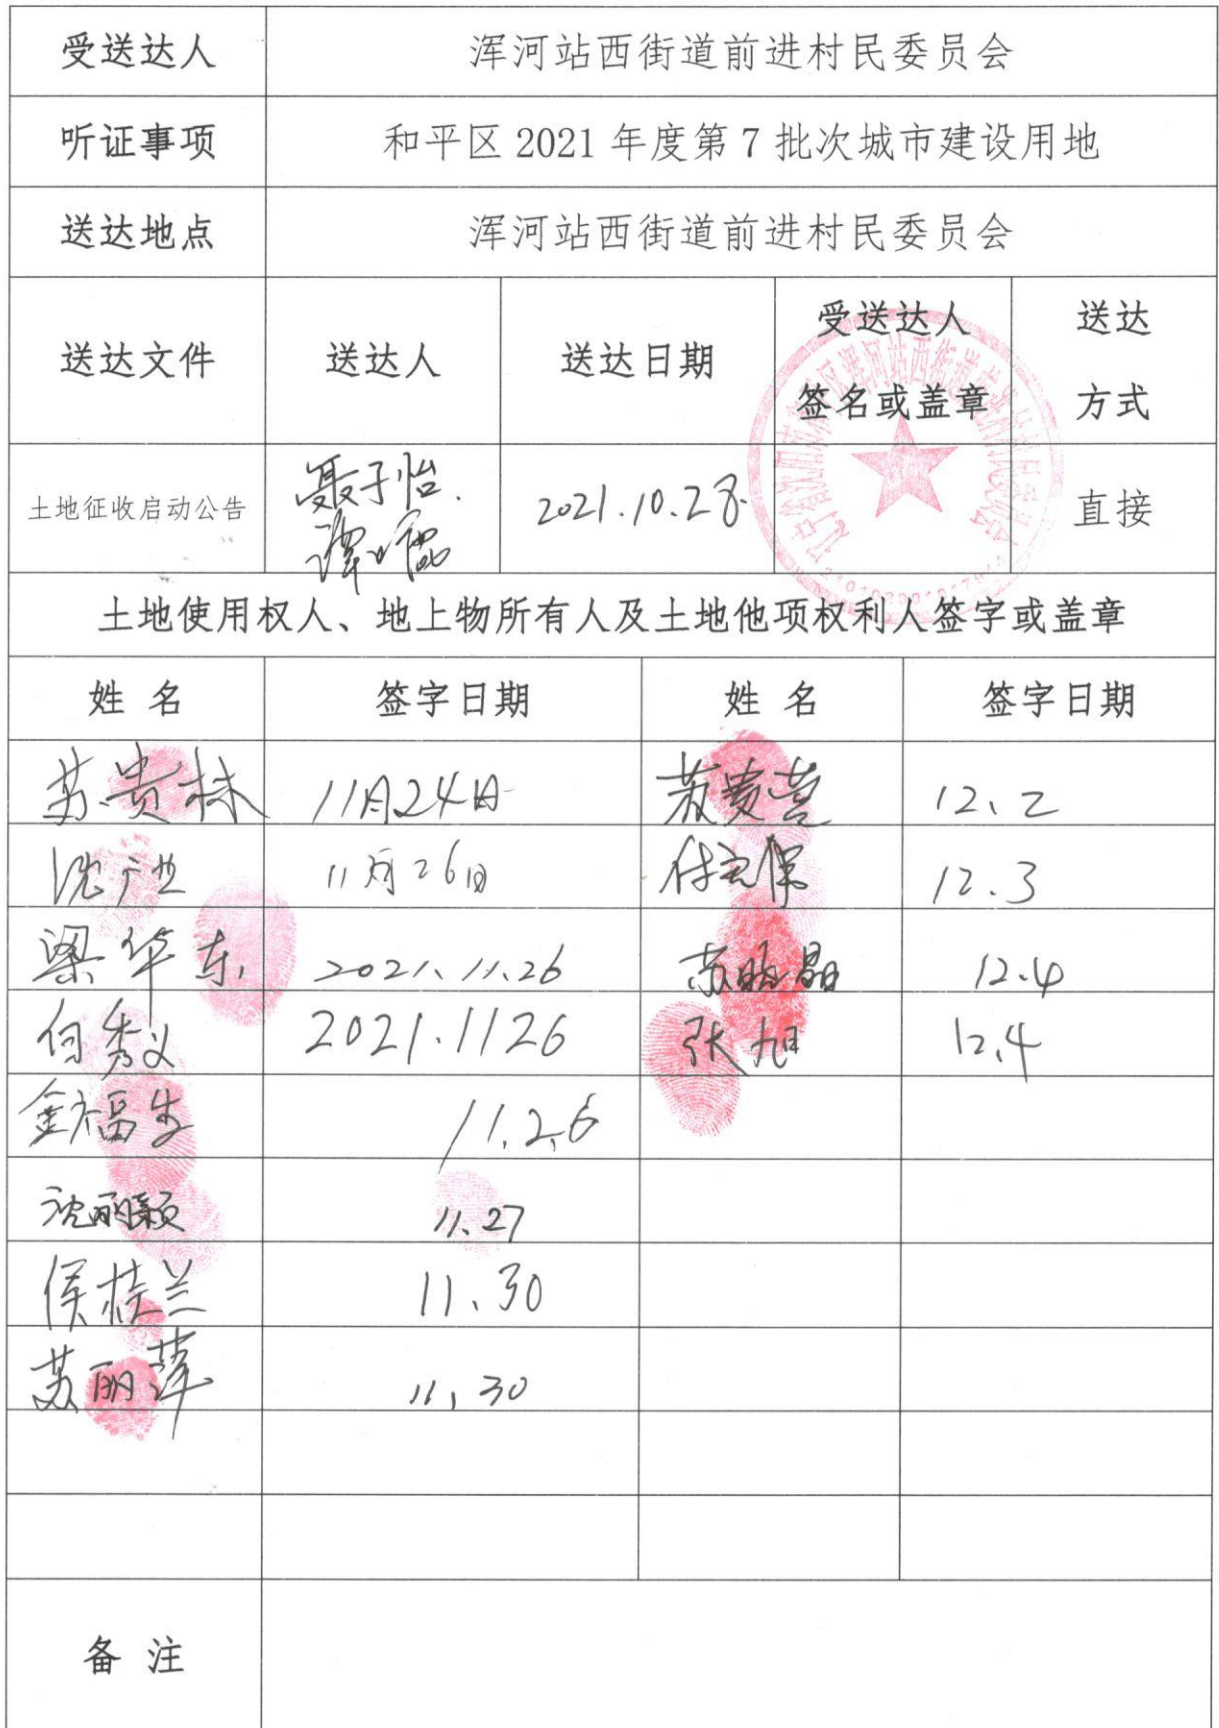 受送达人 浑河站西街道前进村民委员会
听证事项 和平区 2021 年度第 7 批次城市建设用地
送达地点 浑河站西街道前进村民委员会
送达文件 送达人 送达日期 受送达人 送达
签名或盖章 方式
土地征收启动公告 聂子怡. 2021.10.28. 直接
土地使用权人、地上物所有人及土地他项权利人签字或盖章
姓 名 签字日期 姓 名 签字日期
苏贵林 11月24日 苏贵营 12.2
沈广 11月26日 付 保 12.3
梁华东 2021.11.26 苏 晶 12.4
白秀义 2021.1126 张旭 12.4
金福生 11.26
沈丽颖 11.27
侯桂兰 11.30
苏丽萍 11.30
备 注